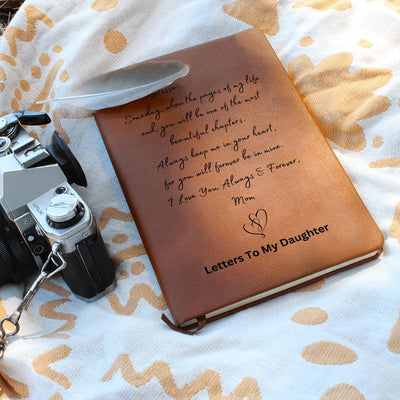 Someday when the pages of my life
end, you will be one of the most
beautiful chapters.
Always keep me in your heart,
for you will forever be in mine.
I Love You Always & Forever,
Mom
Letters To My Daughter